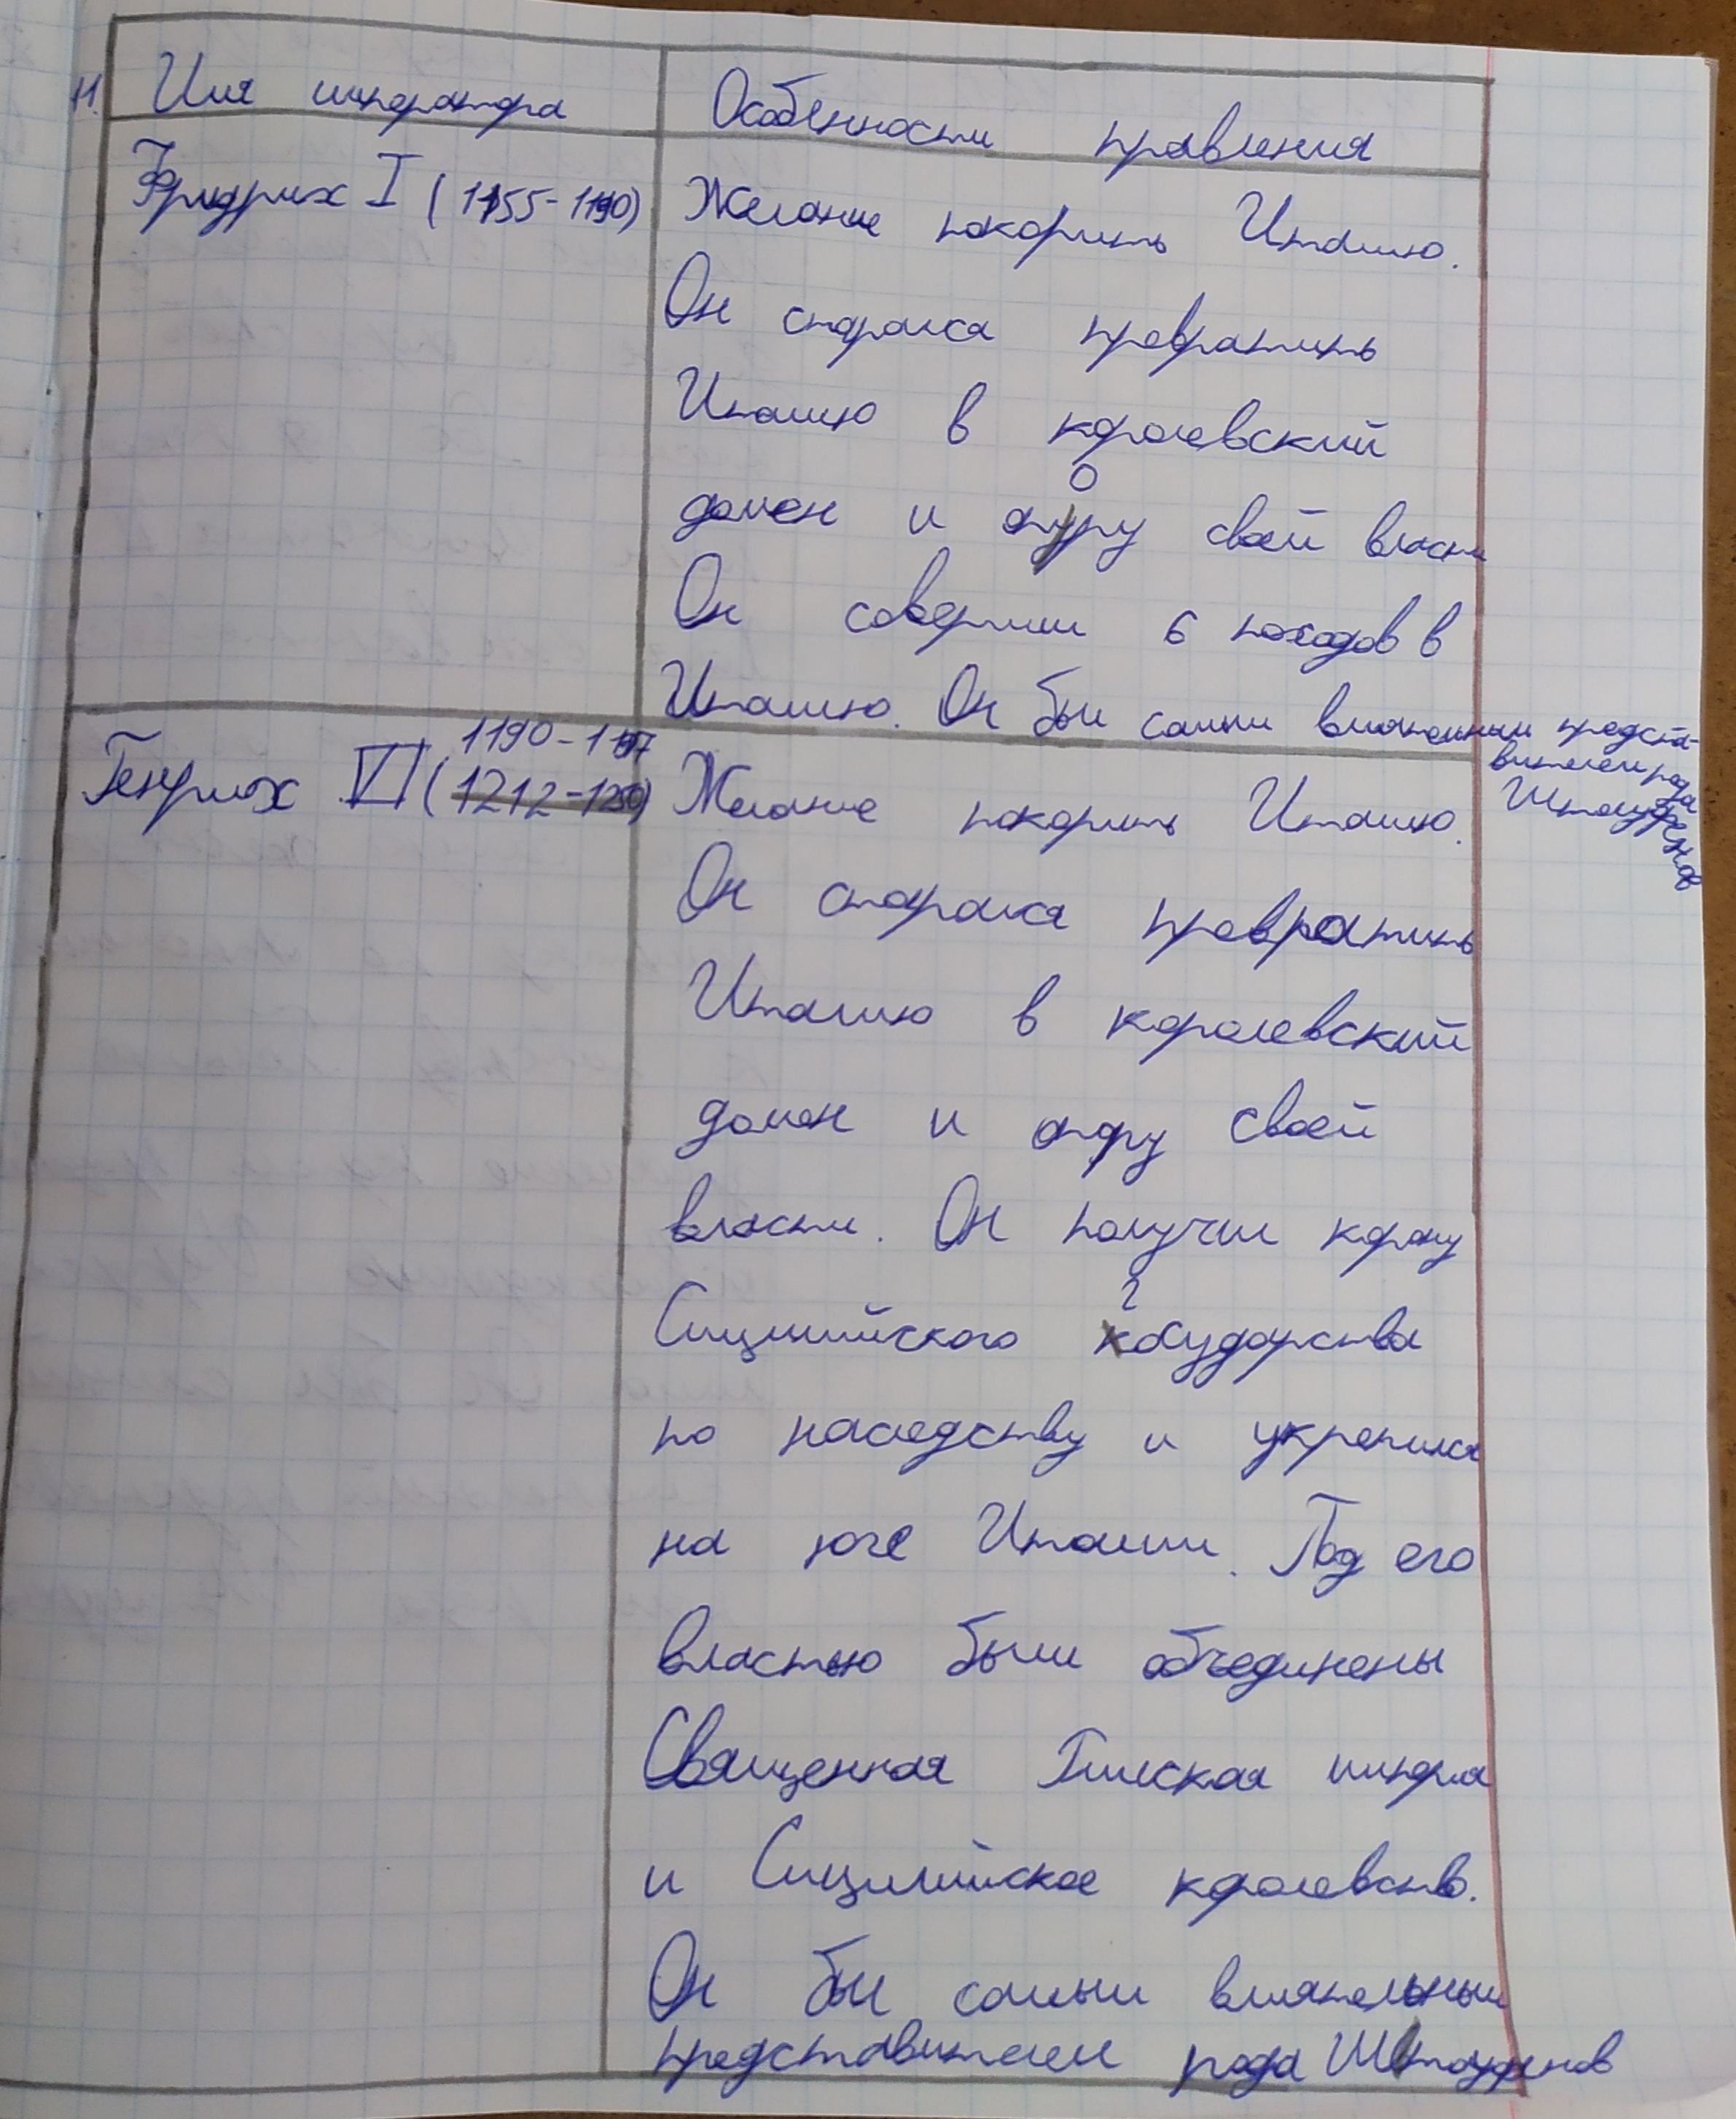 11. Имя императора
Особенности правления
Фридрих I (1155-1190)
Желание покорить Италию.
Он старался превратить
Италию в королевский
домен и опору своей власти
Он совершил 6 походов в
Италию. Он был самым влиятельным предста-
вителем рода
Штауфенов
Генрих VI (1212-1250)
1190-1197
Желание покорить Италию.
Он старался превратить
Италию в королевский
домен и опору своей
власти. Он получил корону
Сицилийского государства
по наследству и укрепился
на юге Италии. Под его
властью были объединены
Священная Римская империя
и Сицилийское королевство.
Он был самым влиятельным
представителем рода Штауфенов